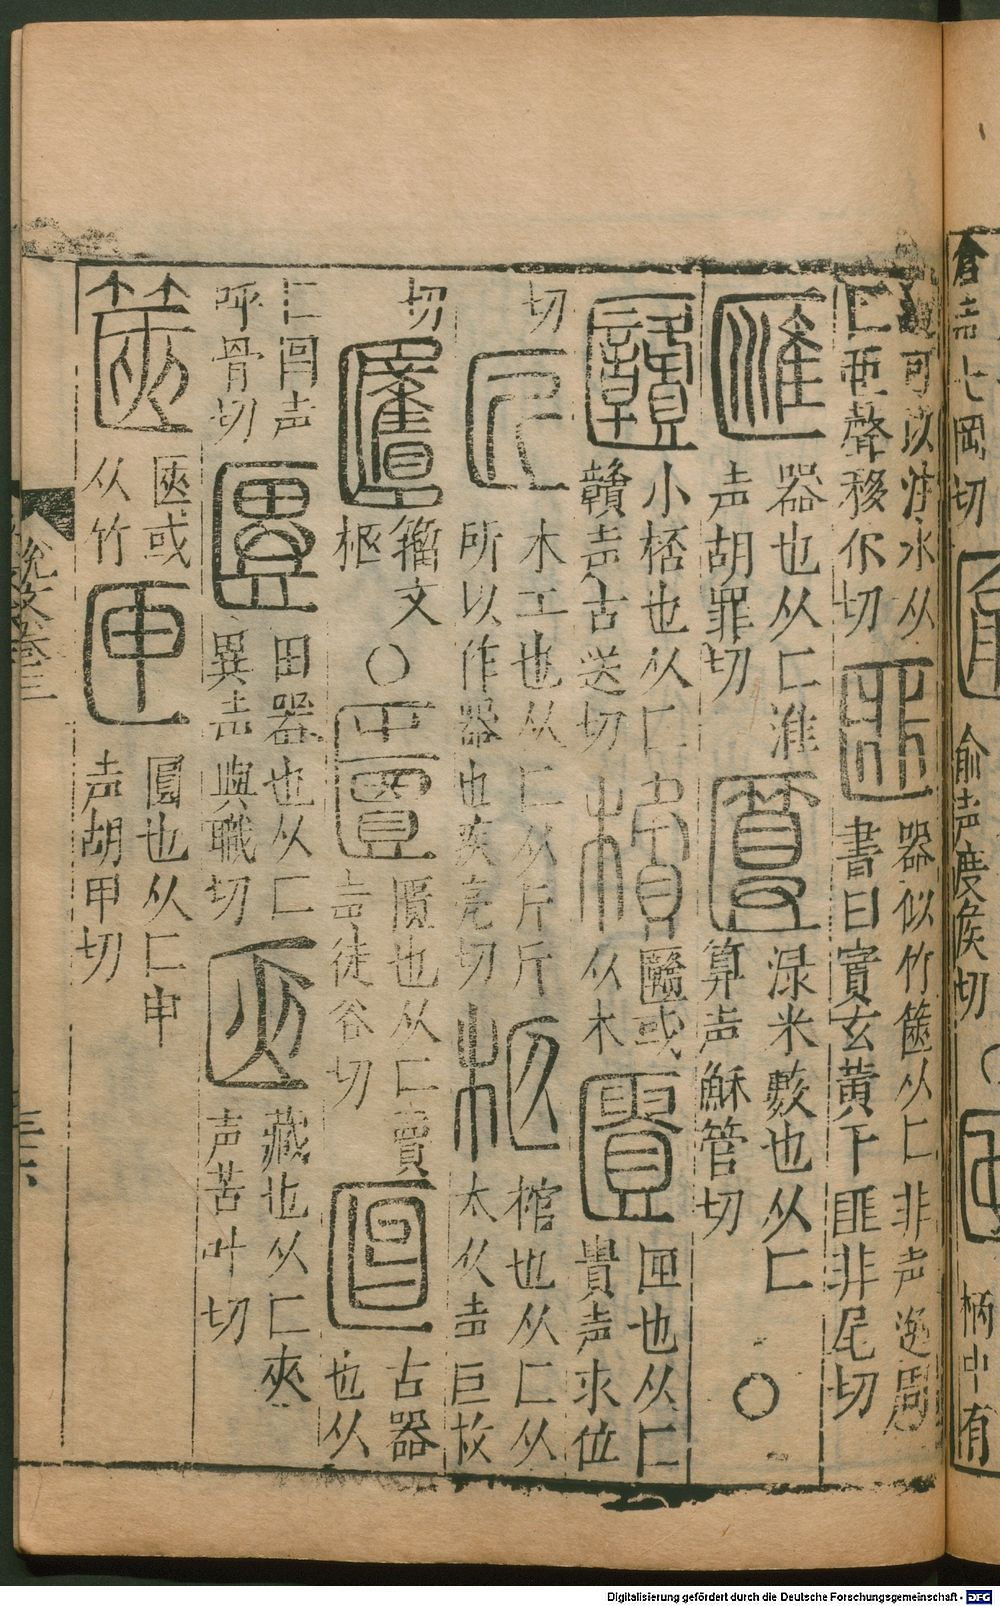 倉声七岡切
俞声度矦切
柄中有
道可以注水从
匚亞聲移尒切
匪
器似竹篋从匚非声逸周
書曰實玄黃于匪非尾切
匯
器也从匚淮
声胡罪切
匴
渌米籔也从匚
算声穌管切
〇
𠥻
小桮也从匚
贛声古送切
㯯
𠥻或
从木
匱
匣也从匚
貴声求位
切
匠
木工也从匚从斤斤
所以作器也疾亮切
柩
棺也从匚从
木久声巨救
切
籒文
柩
〇
匵
匱也从匚賣
声徒谷切
匫
古器
也从
匚曶声
呼骨切
田器也从匚
異声與職切
匧
藏也从匚夾
声苦叶切
篋
匧或
从竹
匣
匱也从匚甲
声胡甲切
說文卷三
Digitalisierung gefördert durch die Deutsche Forschungsgemeinschaft - DFG